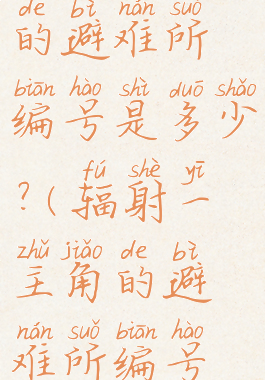 de bì nán suǒ
的避难所
biān hào shì duō shǎo
编号是多少
fú shè yī
?(辐射一
zhǔ jiǎo de bì
主角的避
nán suǒ biān hào
难所编号